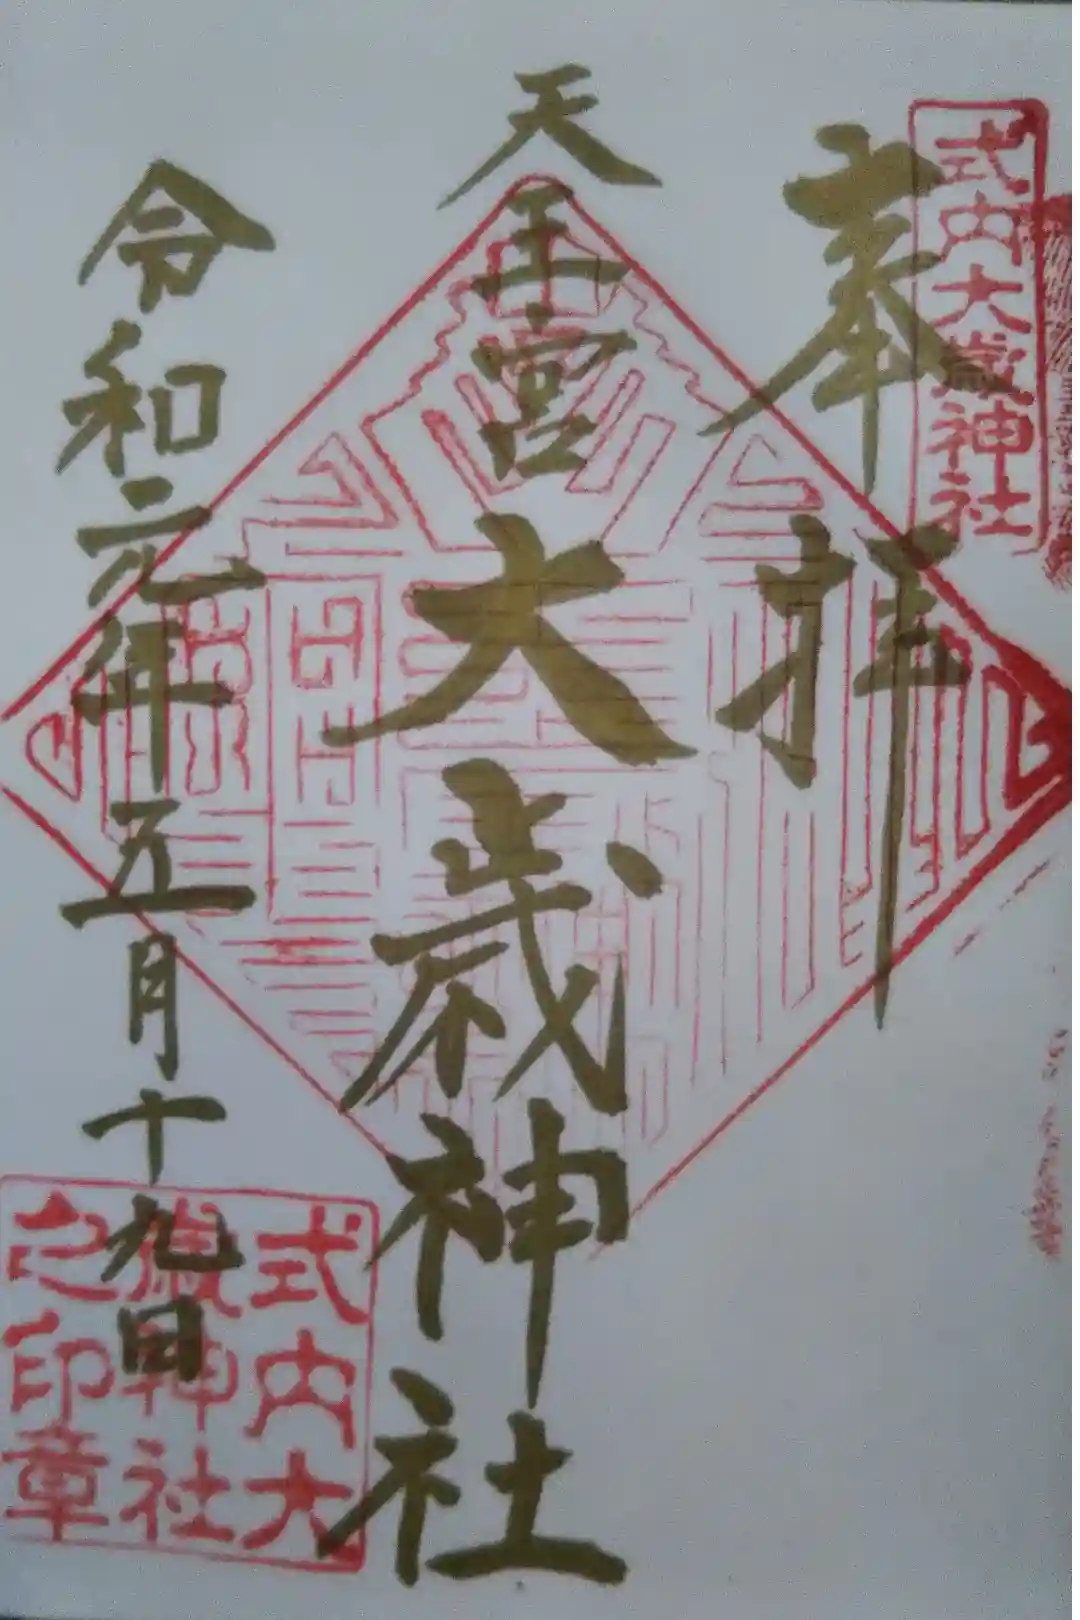 式内大歳神社
奉拝
天王宮
大歳神社
令和元年五月十九日
式内大
歳神社
之印章